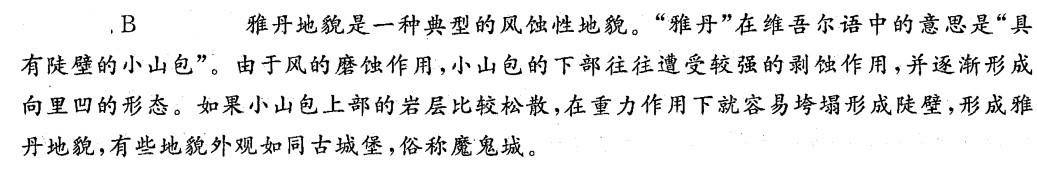 B 雅丹地貌是一种典型的风蚀性地貌。“雅丹”在维吾尔语中的意思是“具
有陡壁的小山包”。由于风的磨蚀作用,小山包的下部往往遭受较强的剥蚀作用,并逐渐形成
向里凹的形态。如果小山包上部的岩层比较松散,在重力作用下就容易垮塌形成陡壁,形成雅
丹地貌,有些地貌外观如同古城堡,俗称魔鬼城。